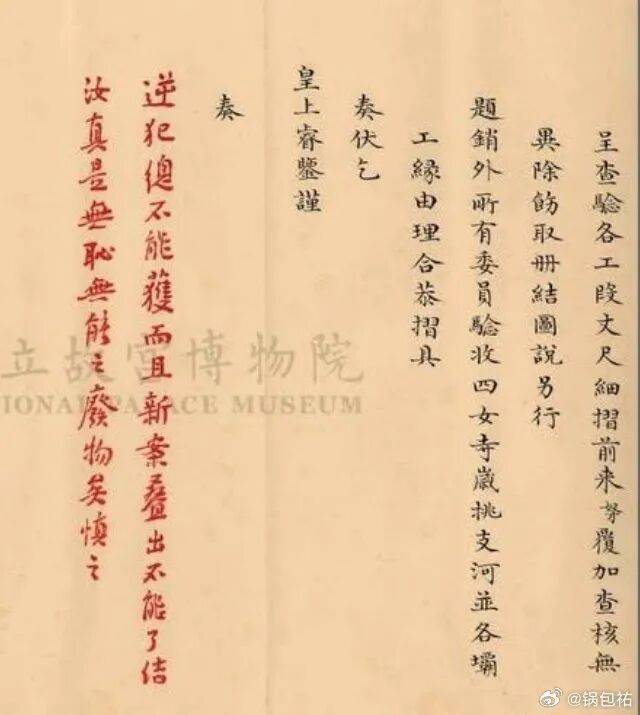 呈查驗各工段丈尺細摺前來努覆加查核無
異除飭取冊結圖說另行
題銷外所有委員驗收四女寺歲挑支河並各壩
工緣由理合恭摺具
奏伏乞
皇上睿鑒謹
奏
逆犯總不能獲而且新案疊出不能了结
汝真是無恥無能之廢物矣慎之
立故宮博物院
IONAL PALACE MUSEUM
@锅包祐